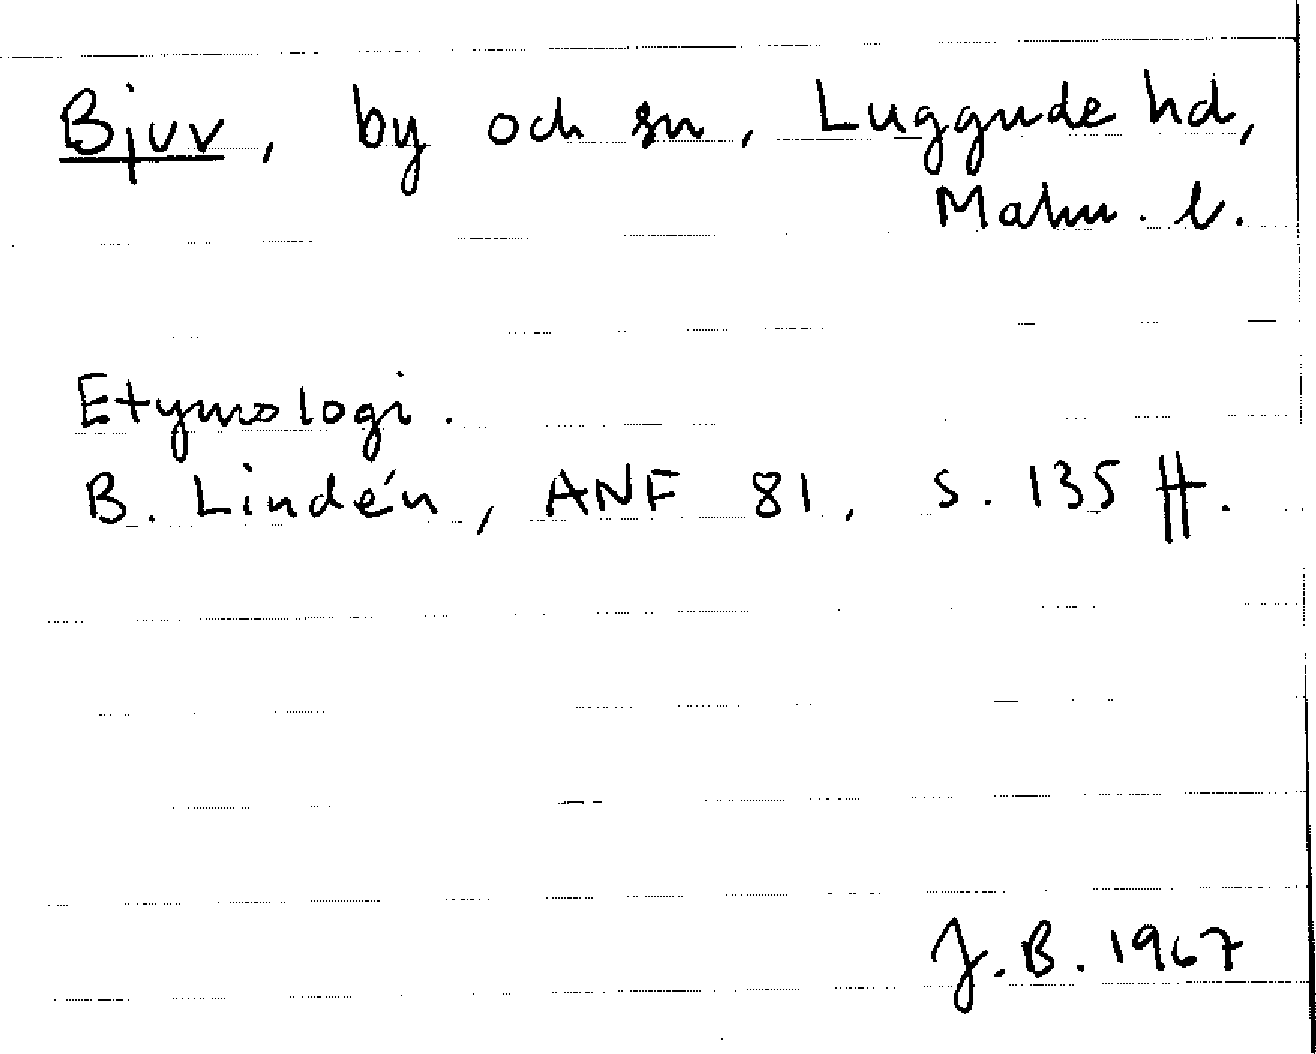 Bjuv, by och sn, Luggude hd,
Malm. l.
Etymologi.
B. Lindén, ANF 81, s. 135 ff.
J.B. 1967